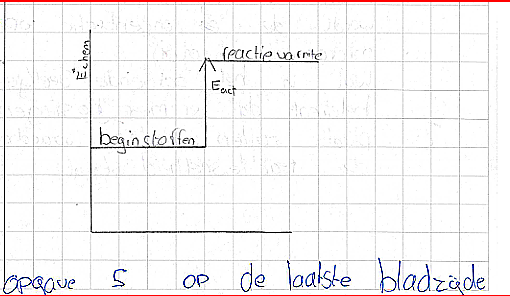 Echem
reactiewarmte
Eact
beginstoffen
opgave 5 op de laatste bladzijde